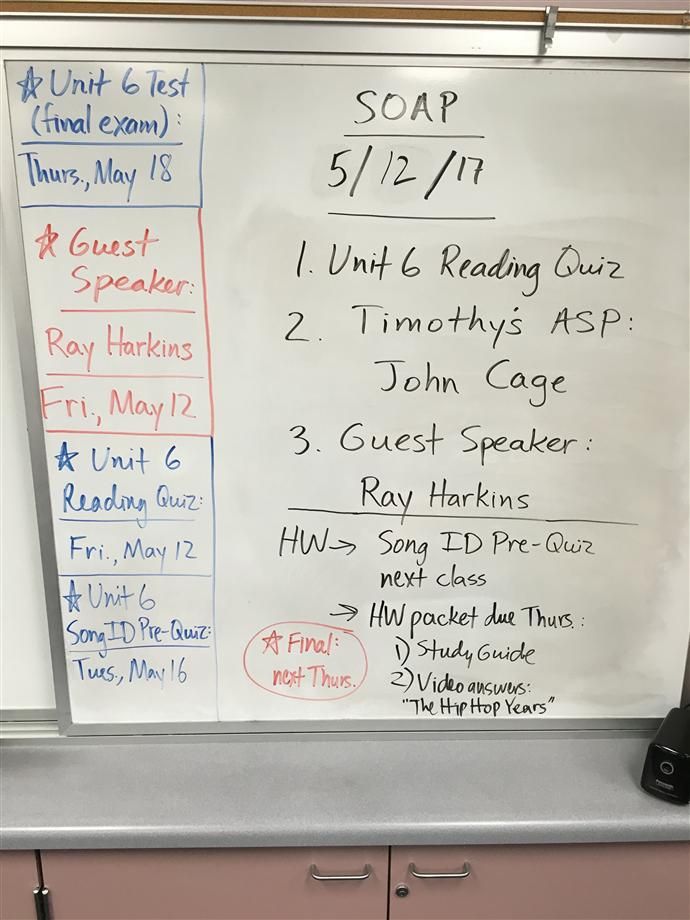 ☆ Unit 6 Test
(final exam):
Thurs., May 18
☆ Guest
Speaker:
Ray Harkins
Fri., May 12
☆ Unit 6
Reading Quiz:
Fri., May 12
☆ Unit 6
Song ID Pre-Quiz:
Tues., May 16
SOAP
5/12/17
1. Unit 6 Reading Quiz
2. Timothy's ASP:
John Cage
3. Guest Speaker:
Ray Harkins
HW→ Song ID Pre-Quiz
next class
→ HW packet due Thurs.:
1) Study Guide
2) Video answers:
"The Hip Hop Years"
☆ Final:
next Thurs.